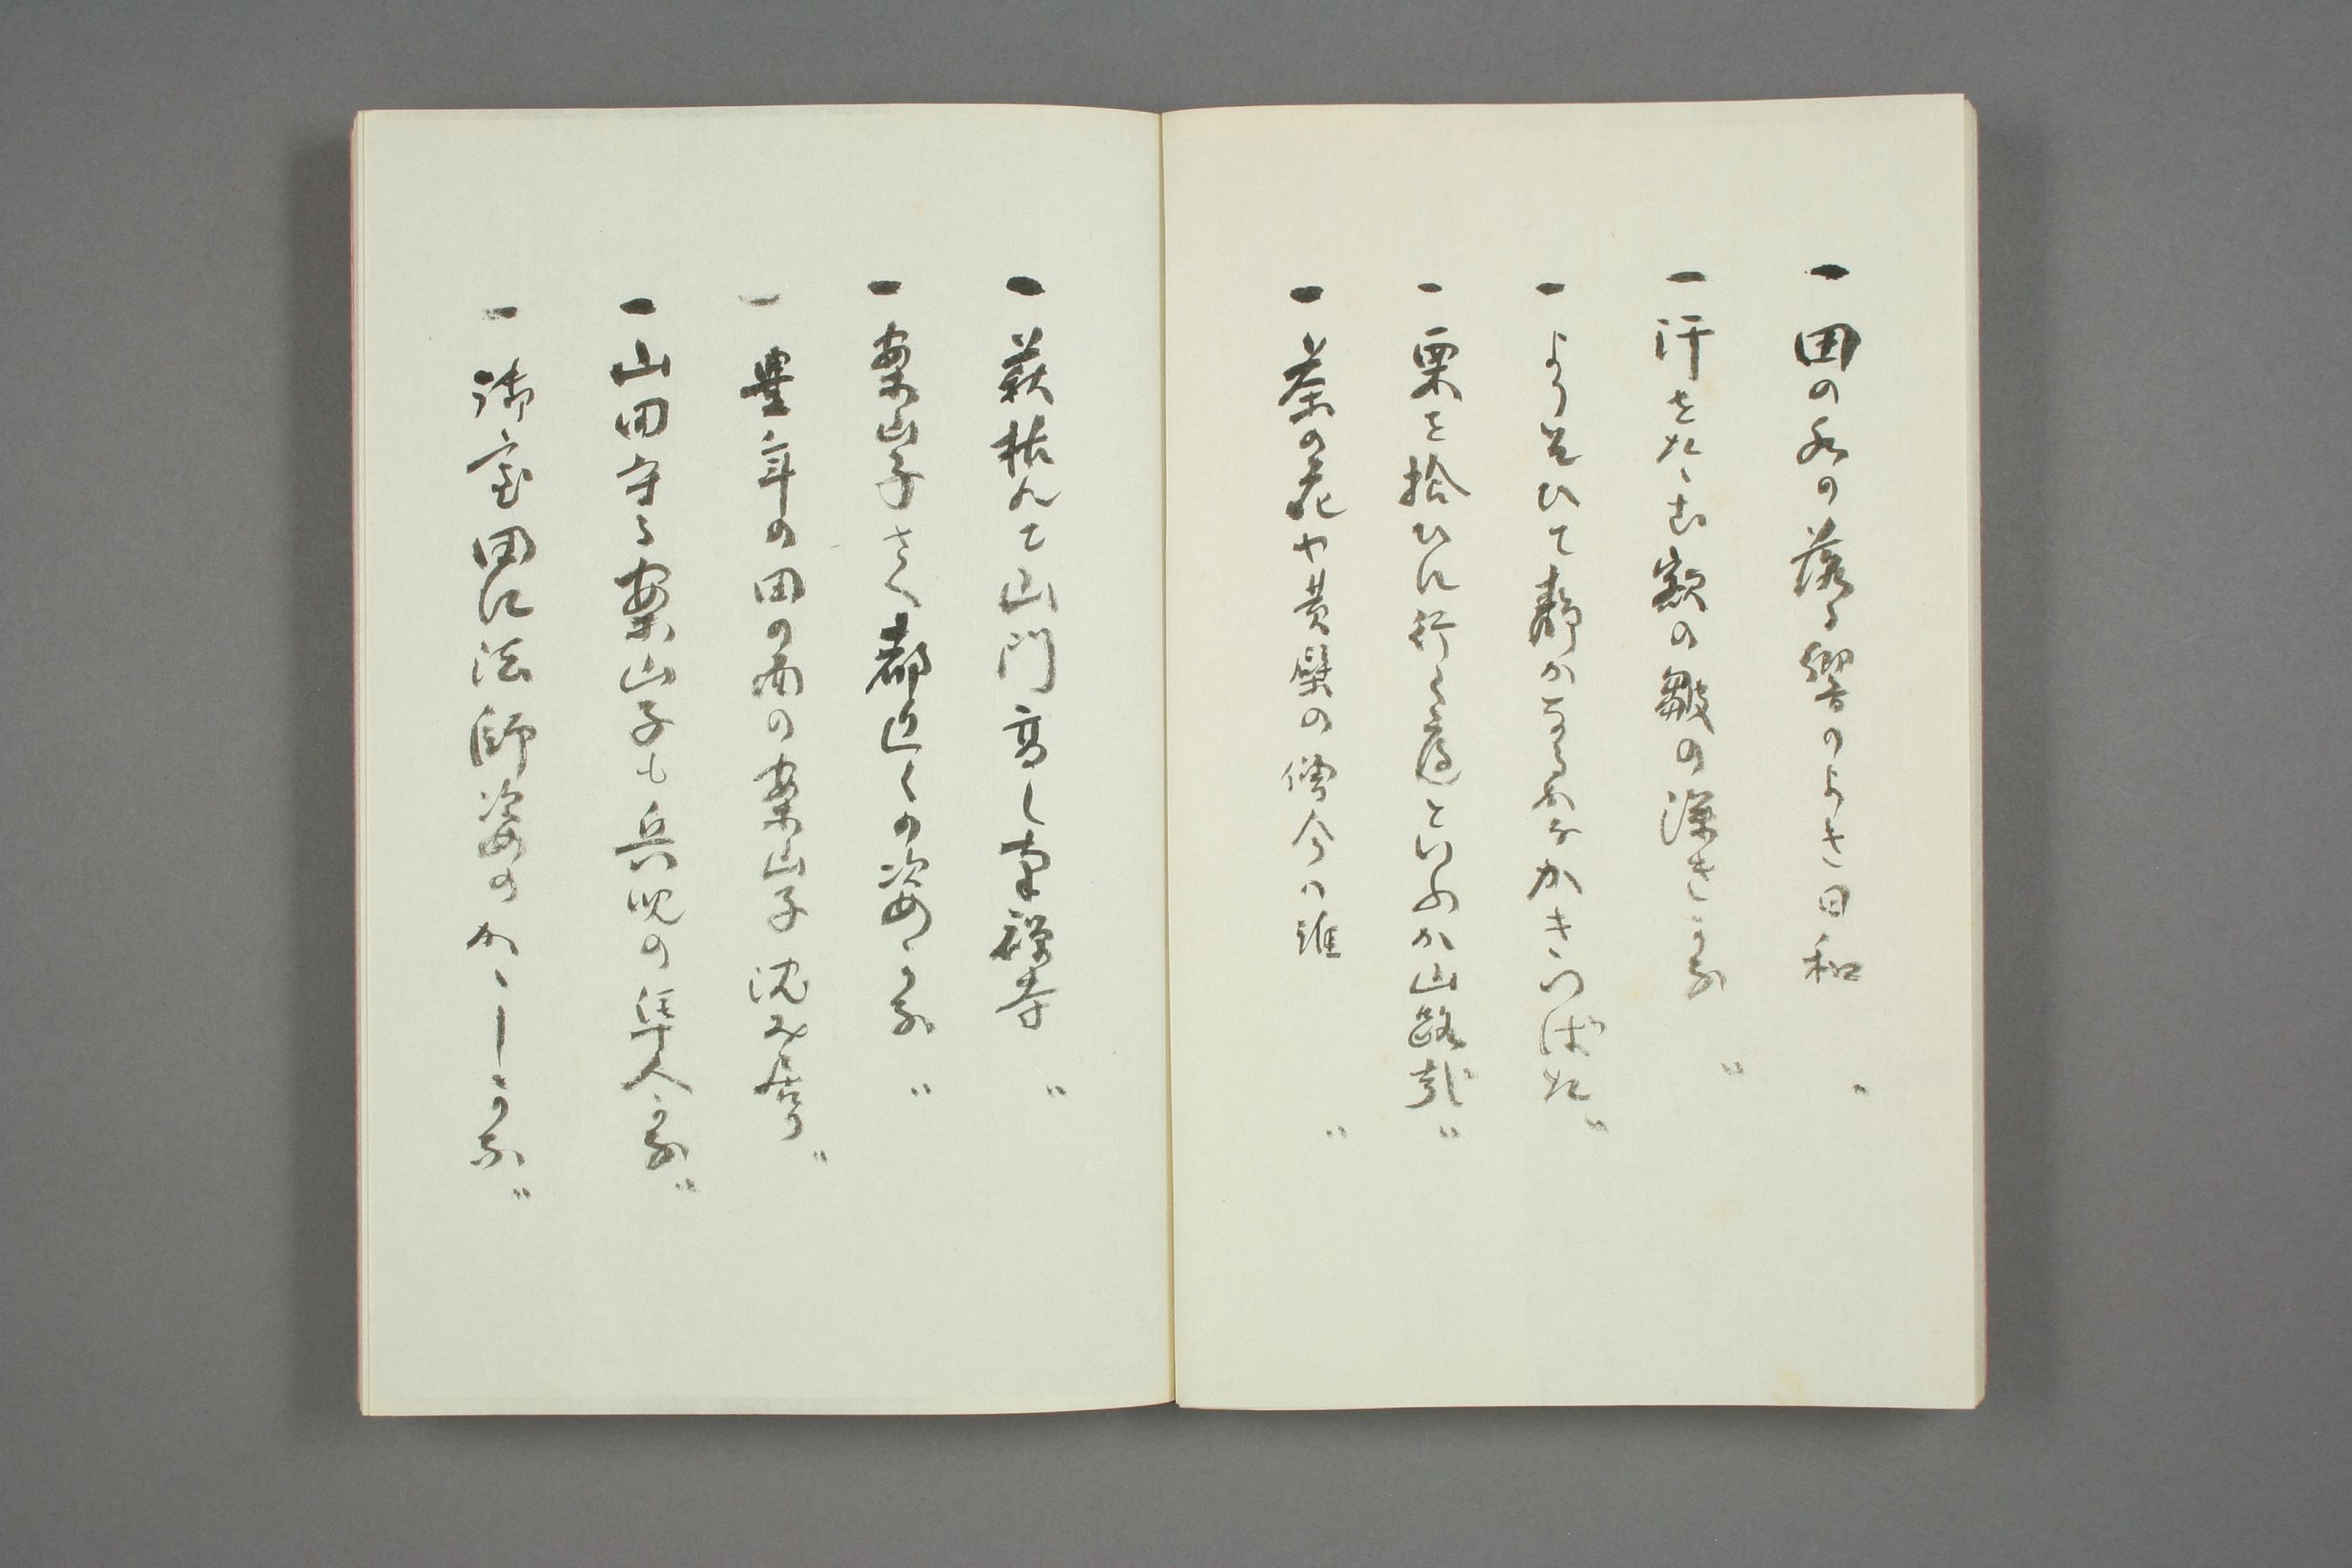 一 田の水の落る響のよき日和 〃
一 汗をたゝむ額の皺の深きかな 〃
一 よりそひて静かなるかなかきつばた 〃
一 栗を拾ひに行く道といふか山路哉 〃
一 茶の花や黄檗の僧今は誰 〃
一 萩枯れて山門高し南禅寺 〃
一 案山子さへ都近くの姿かな 〃
一 豊年の田の面の案山子沈み居り 〃
一 山田守る案山子も兵児の隼人かな 〃
一 御室田に法師姿のかゝしかな 〃